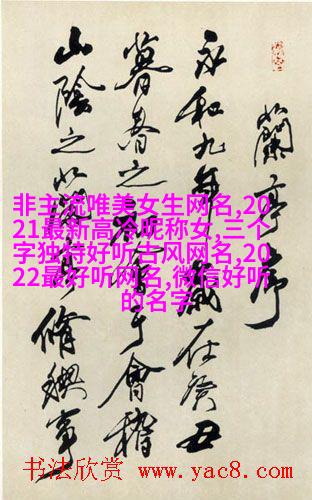 蘭亭序
永和九年歲在癸丑
暮春之于會稽
山陰之脩禊事
非主流唯美女生网名,20
21最新高冷昵称女,三个
字独特好听古风网名,20
22最好听网名,微信好听
的名字
书法欣赏 www.yac8.com